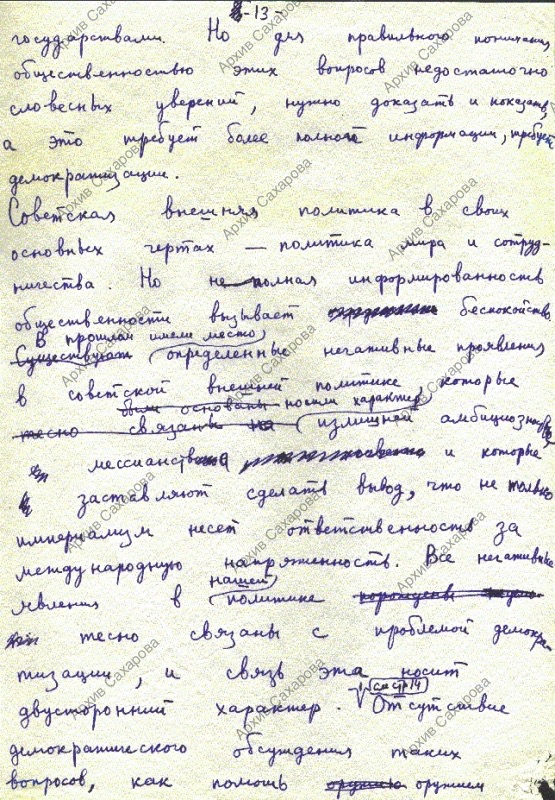 -13-
государствами. Но для правильного понимания
общественностью этих вопросов недостаточно
словесных уверений, нужно доказать и показать,
а это требует более полной информации, требует
демократизации.
Советская внешняя политика в своих
основных чертах — политика мира и сотруд-
ничества. Но неполная информированность
общественности вызывает беспокойство
В прошлом имели место
Существуют определенные негативные проявления
в советской внешней политике, которые
были основаны носили характер
тесно связаны на излишней амбициозн
мессианств и которые
заставляют сделать вывод, что не только
империализм несет ответственность за
международную напряженность. Все негативные
нашей
явления в политике порождены
тесно связаны с проблемой демокра-
тизации, и связь эта носит
см стр 14
двусторонний характер. Отсутствие
демократического обсуждения таких
вопросов, как помощь оружием
Архив Сахарова